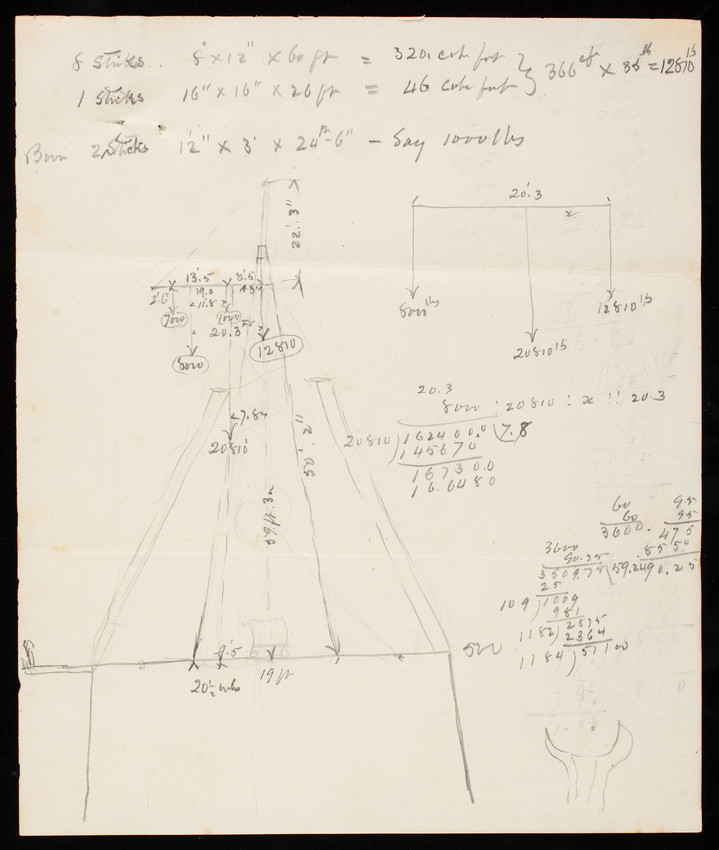 8 Sticks .. 8" × 12" × 60 ft = 320. cub foot } 366 cft × 35 lb = 12810 lb
1 Sticks 16" × 16" × 26 ft = 46 cub foot
Boom 2 Sticks 12" × 3' × 24 ft - 6" - Say 1000 lbs
22'.3"
20'.3
x
8000 lbs
12810 lb
20810 lb
13'.5
5'.5
19.0
2'6"
11'.8
7000
1000
20.3
8000
12810
20.3
8000 : 20810 : x :: 20.3
7.8
20810 ) 162400.0 ( 7.8
145670
167300
166480
20810
59 ft. 3in
60
60
3600.
95
95
475
855
90.25
3600
90.25
3509.75 ( 59.24
25
109 ) 1009
981
1182 ) 2875
2364
1184 ) 51100
9'.5
500
20½
19 ft